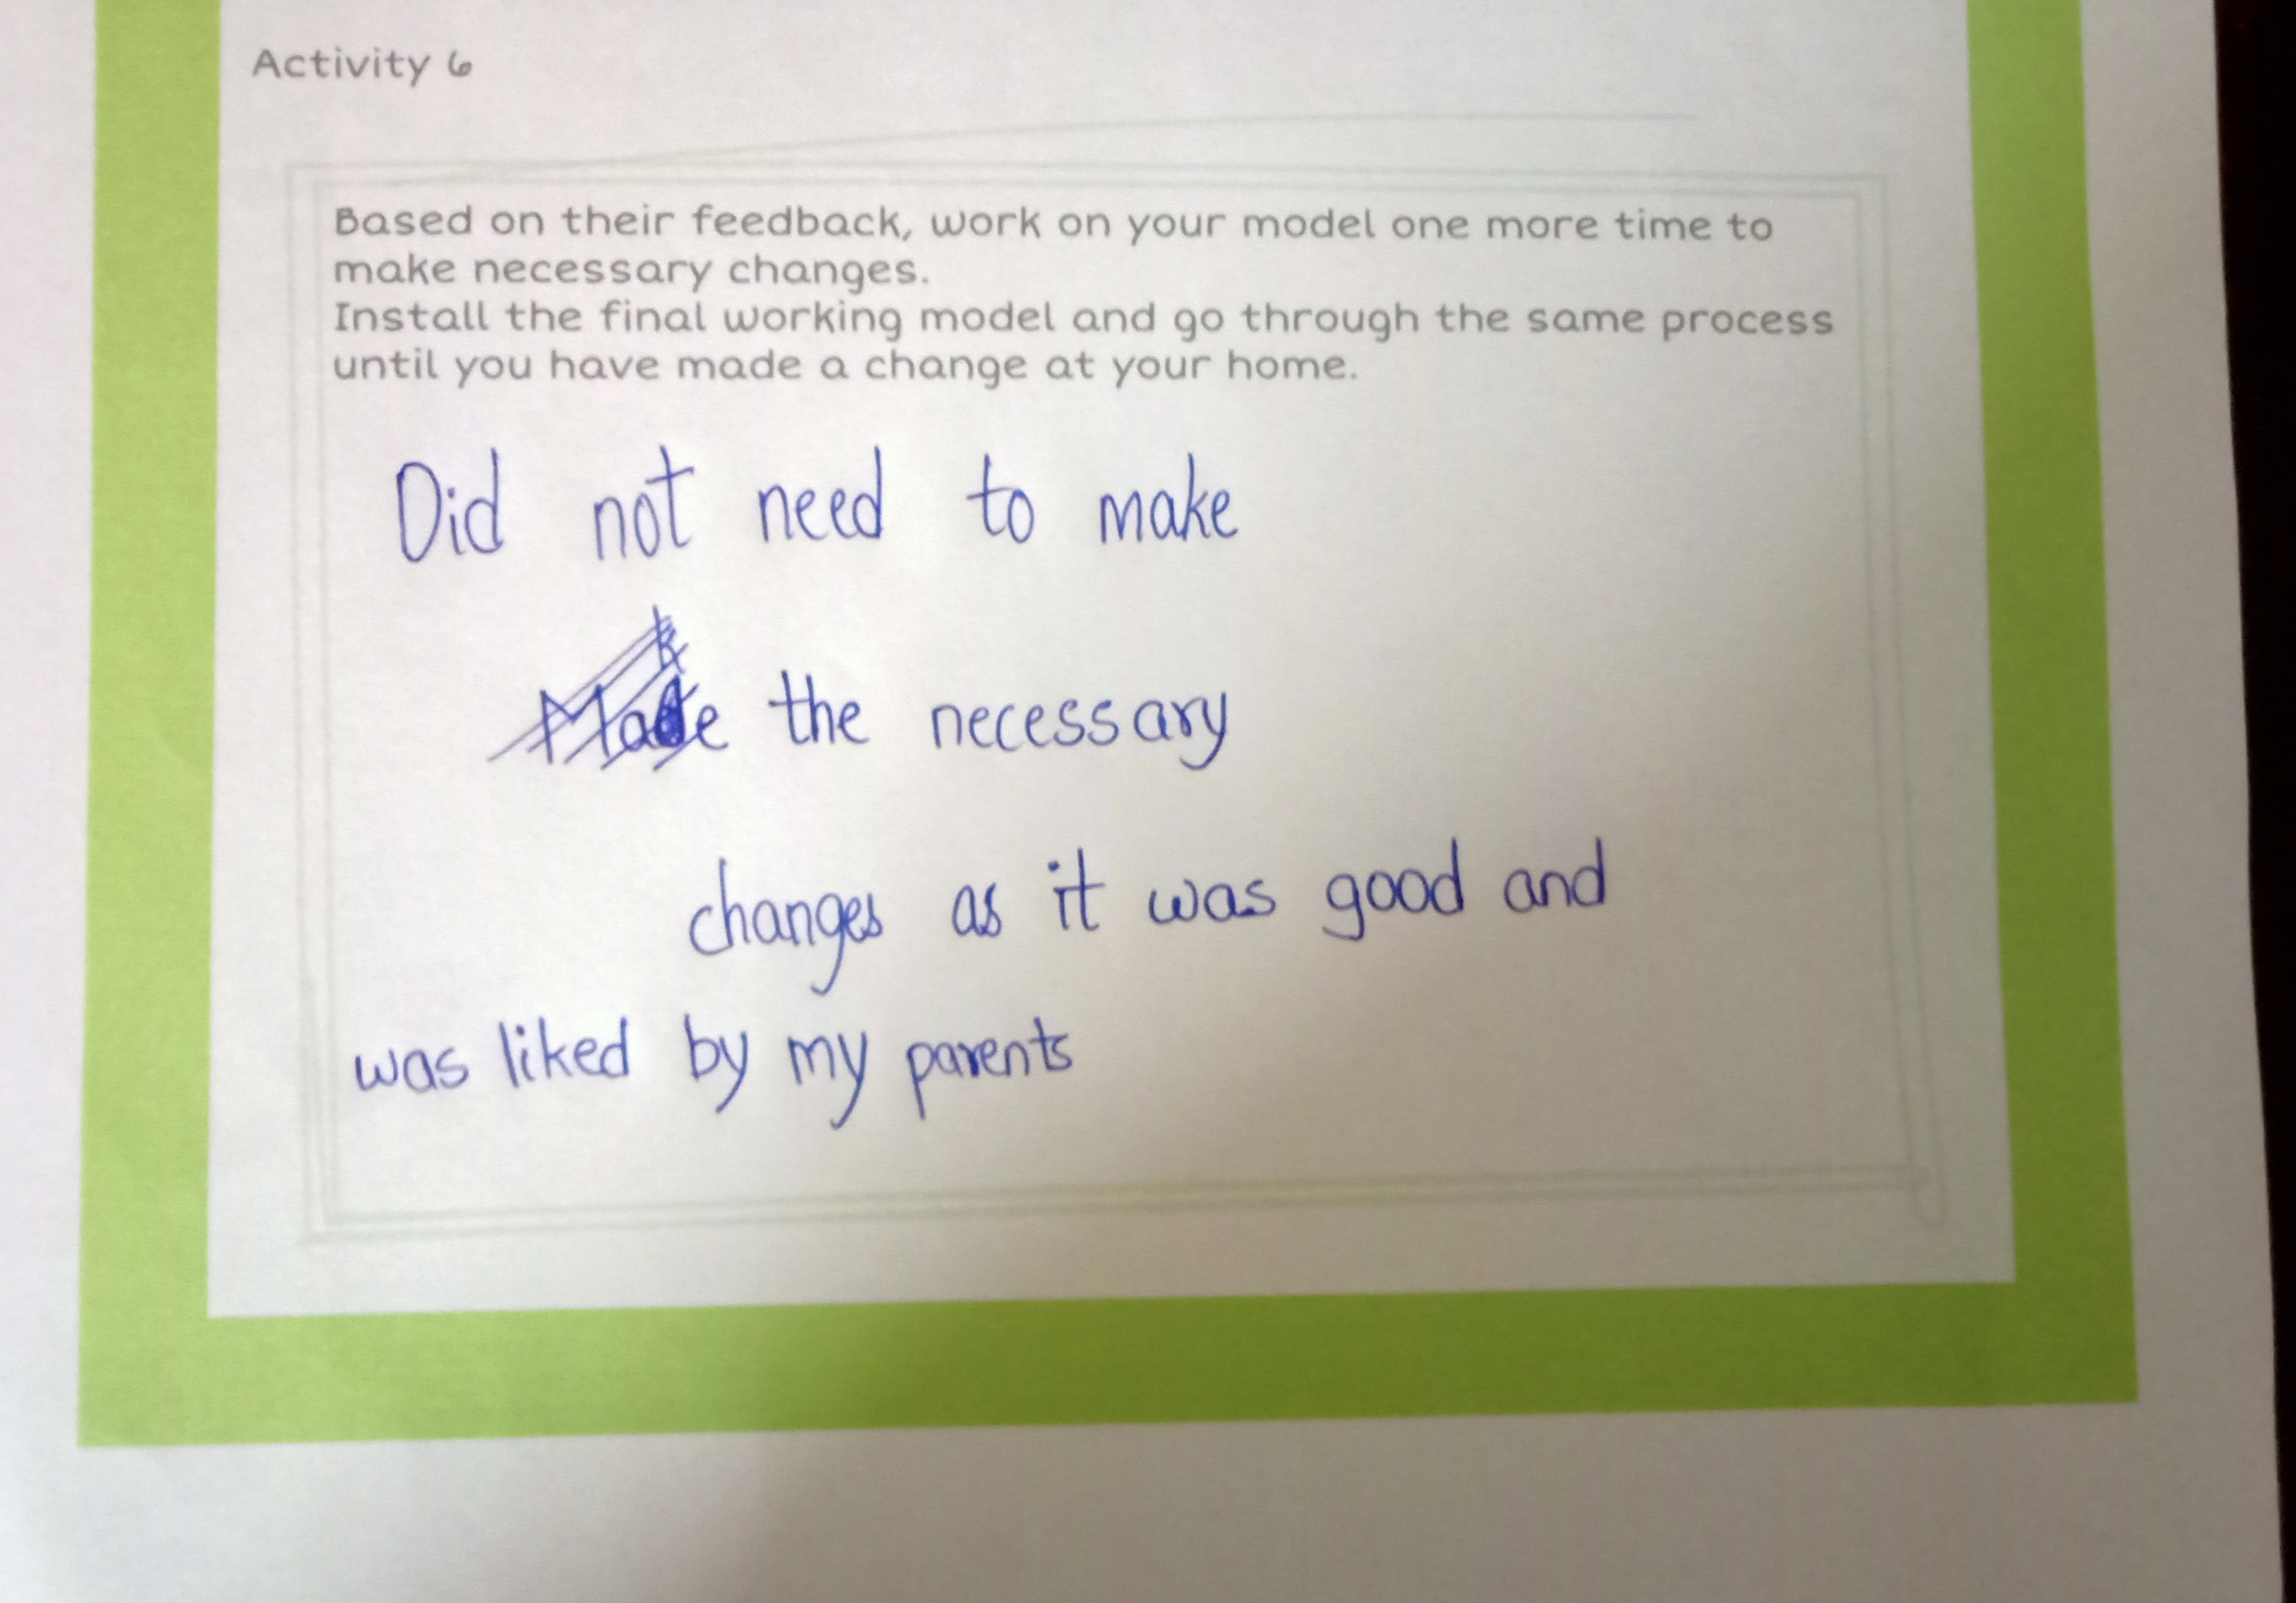 Activity 6
Based on their feedback, work on your model one more time to
make necessary changes.
Install the final working model and go through the same process
until you have made a change at your home.
Did not need to make
the necessary
changes as it was good and
was liked by my parents